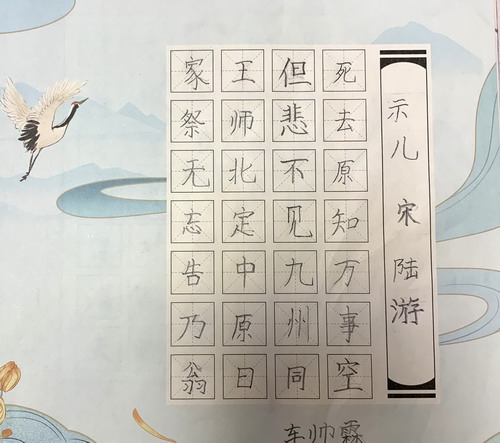 示儿 宋 陆游
死去原知万事空
但悲不见九州同
王师北定中原日
家祭无忘告乃翁
车帅霖